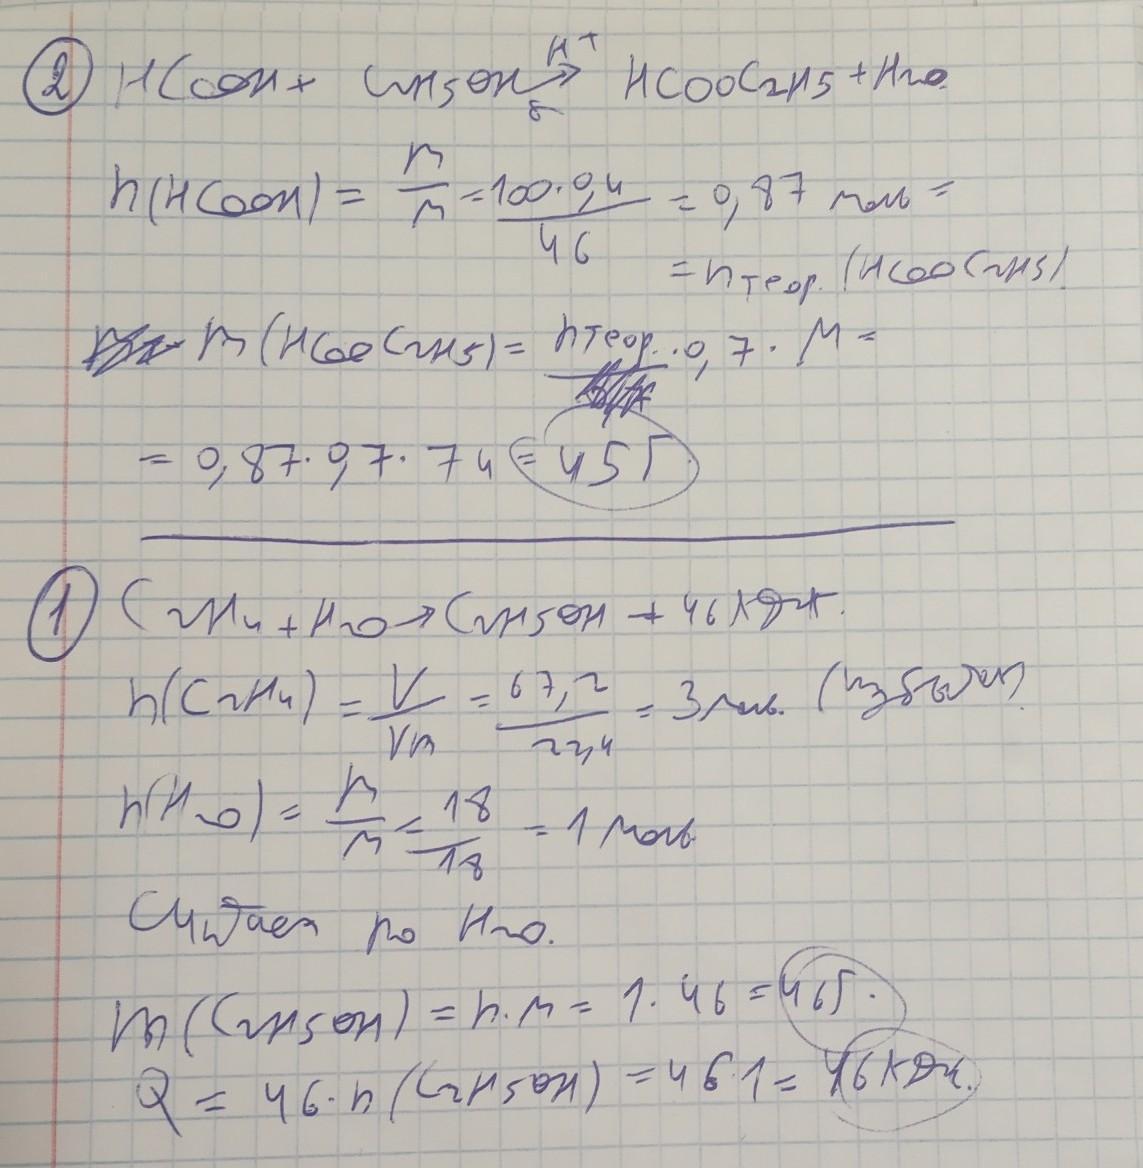 ② HCOOH + C2H5OH ⇄ H+ HCOOC2H5 + H2O
n(HCOOH) = m/M = 100·0,4/46 = 0,87 моль =
= nтеор. (HCOOC2H5)
m(HCOOC2H5) = nтеор. · 0,7 · M =
= 0,87·0,7·74 = 45 г
① C2H4 + H2O → C2H5OH + 46 кДж.
n(C2H4) = V/Vm = 67,2/22,4 = 3 моль. (избыток)
n(H2O) = m/M = 18/18 = 1 моль
Считаем по H2O.
m(C2H5OH) = n·M = 1·46 = 46 г.
Q = 46·n(C2H5OH) = 46·1 = 46 кДж.